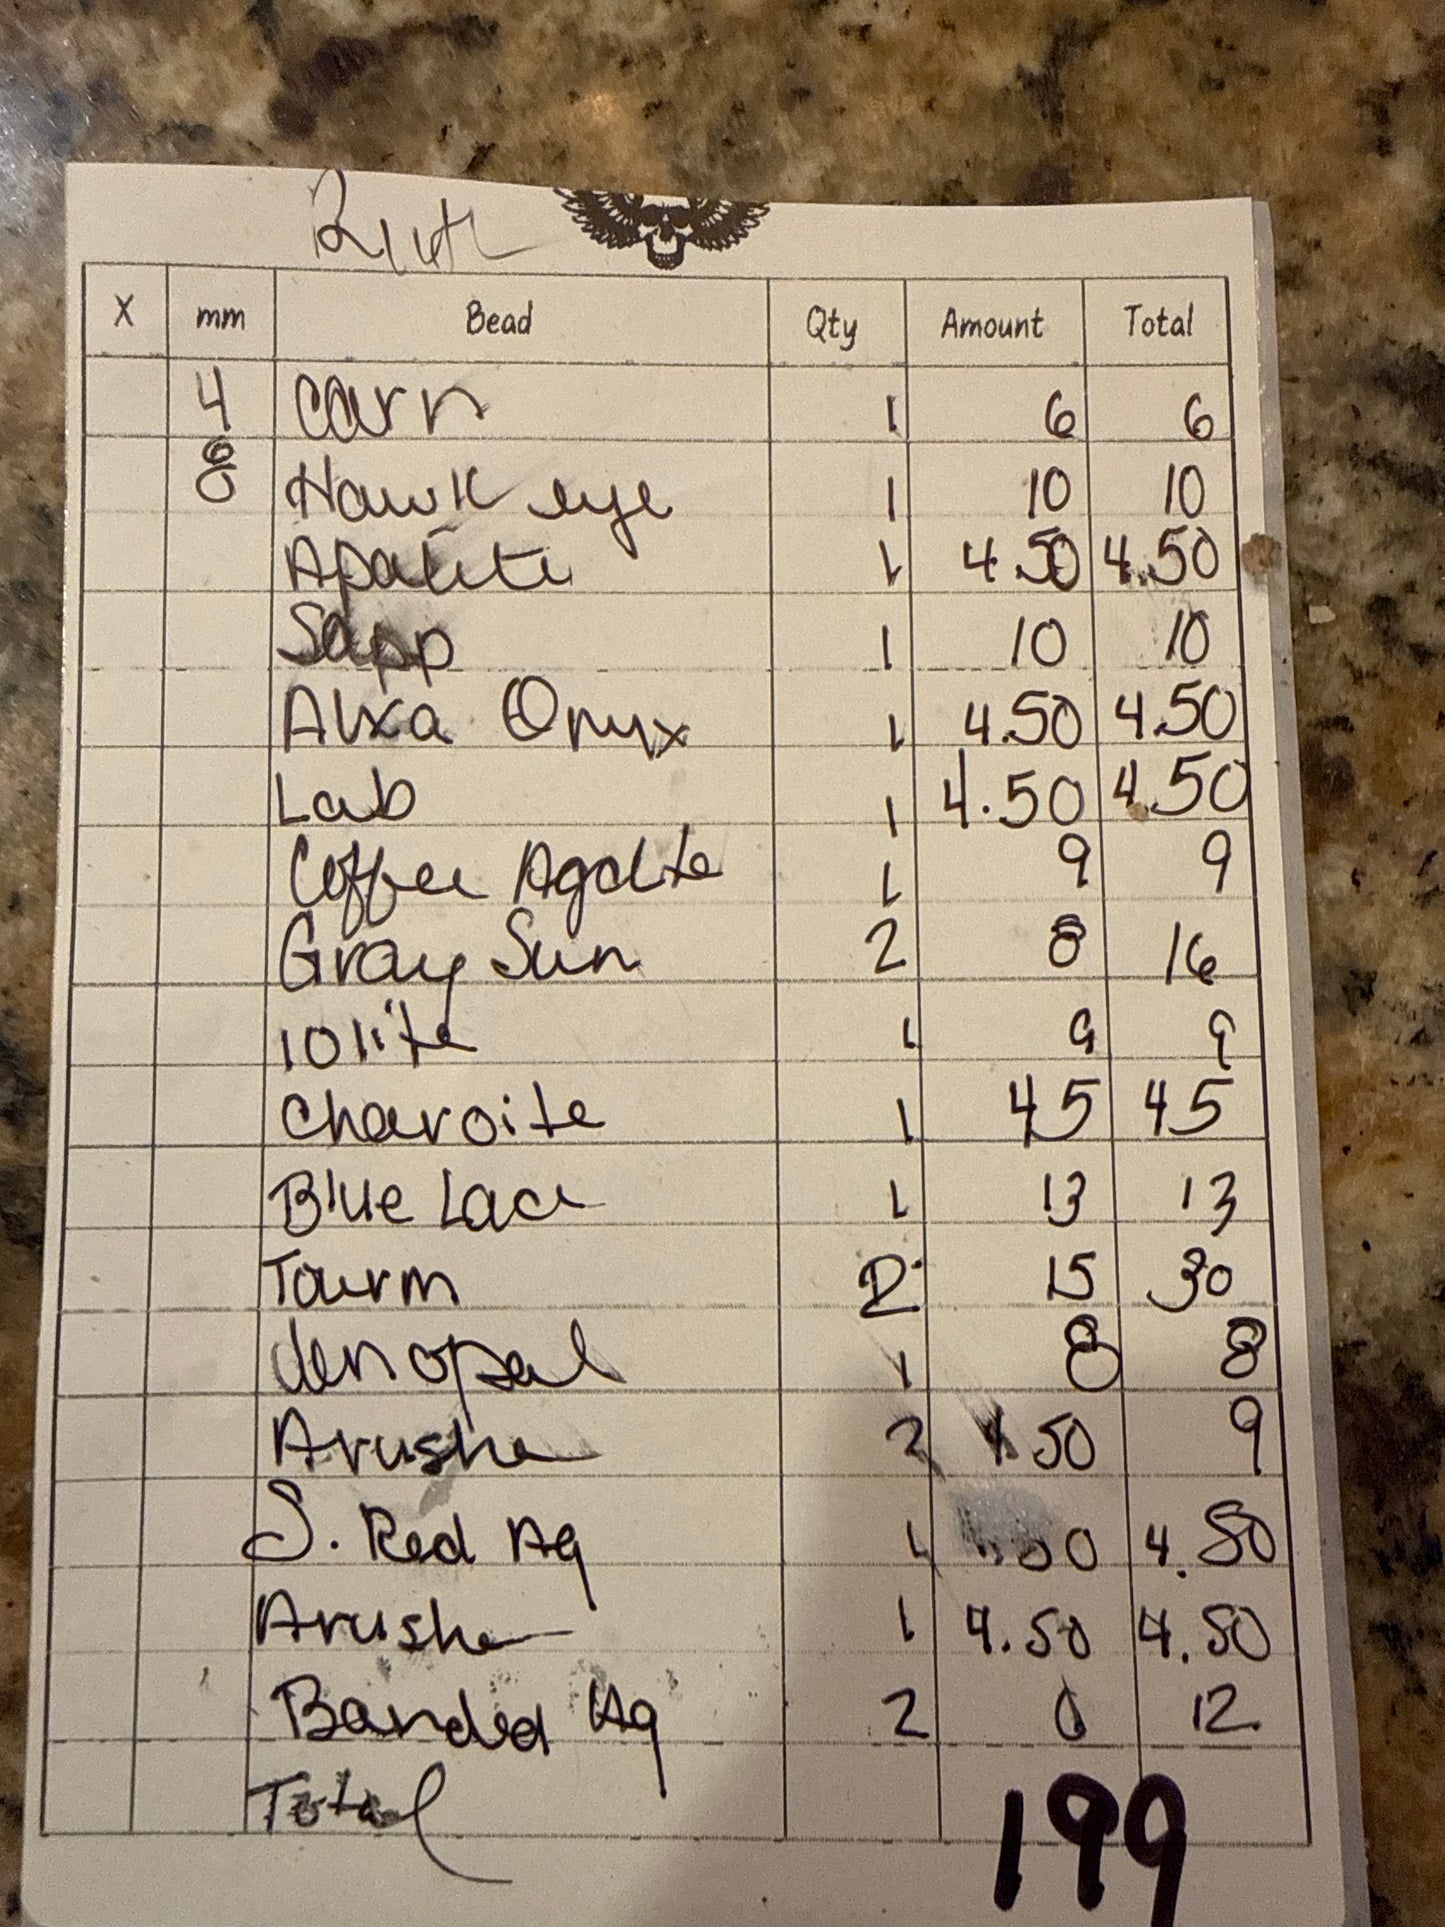 Ruth
X mm Bead Qty Amount Total
4 Carn 1 6 6
6 Hawk eye 1 10 10
Apatite 1 4.50 4.50
Sapp 1 10 10
Alxa Onyx 1 4.50 4.50
Lab 1 4.50 4.50
Coffee Agate 1 9 9
Gray Sun 2 8 16
iolite 1 9 9
Charoite 1 45 45
Blue Lace 1 13 13
Tourm 2 15 30
den opal 1 8 8
Arusha 2 4.50 9
S. Red Ag 1 4.50
Arusha 1 4.50 4.50
Banded Ag 2 6 12
Total 199